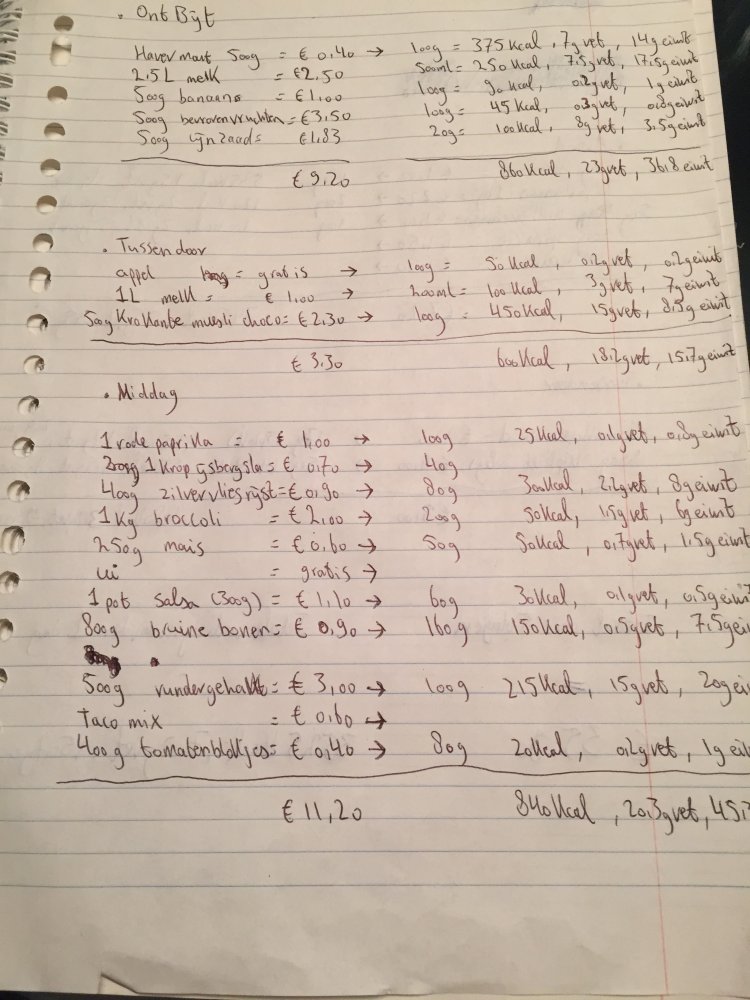 • Ontbijt
Havermout 500g = € 0,40 → 100g = 375 Kcal, 7g vet, 14g eiwit
2,5L melk = €2,50 500ml = 250 Kcal, 7,5g vet, 17,5g eiwit
500g banaans = €1,00 100g = 90 Kcal, 0,2g vet, 1g eiwit
500g bevroren vruchten = €3,50 100g = 45 Kcal, 0,3g vet, 0,8g eiwit
500g lijnzaad = €1,83 20g = 100 Kcal, 8g vet, 3,5g eiwit
€ 9,20 860 Kcal, 23g vet, 36,8 eiwit
• Tussendoor
appel = gratis → 100g = 50 Kcal, 0,2g vet, 0,2g eiwit
1L melk = € 1,00 → 200ml = 100 Kcal, 3g vet, 7g eiwit
500g Krokante muesli choco = €2,30 → 100g = 450 Kcal, 15g vet, 8,5g eiwit
€ 3,30 600 Kcal, 18,2g vet, 15,7g eiwit
• Middag
1 rode paprika = € 1,00 → 100g 25 Kcal, 0,1g vet, 0,8g eiwit
200g 1 Krop ijsbergsla = € 0,70 → 40g
400g zilvervliesrijst = € 0,90 → 80g 300 Kcal, 2,2g vet, 8g eiwit
1 Kg broccoli = € 2,00 → 200g 50 Kcal, 1,5g vet, 6g eiwit
250g mais = € 0,60 → 50g 50 Kcal, 0,7g vet, 1,5g eiwit
ui = gratis →
1 pot salsa (300g) = € 1,10 → 60g 30 Kcal, 0,1g vet, 0,5g eiwit
800g bruine bonen = € 0,90 → 160g 150 Kcal, 0,5g vet, 7,5g ei
500g rundergehakt = € 3,00 → 100g 215 Kcal, 15g vet, 20g ei
Taco mix = € 0,60 →
400g tomatenblokjes = € 0,40 → 80g 20 Kcal, 0,2g vet, 1g ei
€ 11,20 840 Kcal, 20,3g vet, 45,